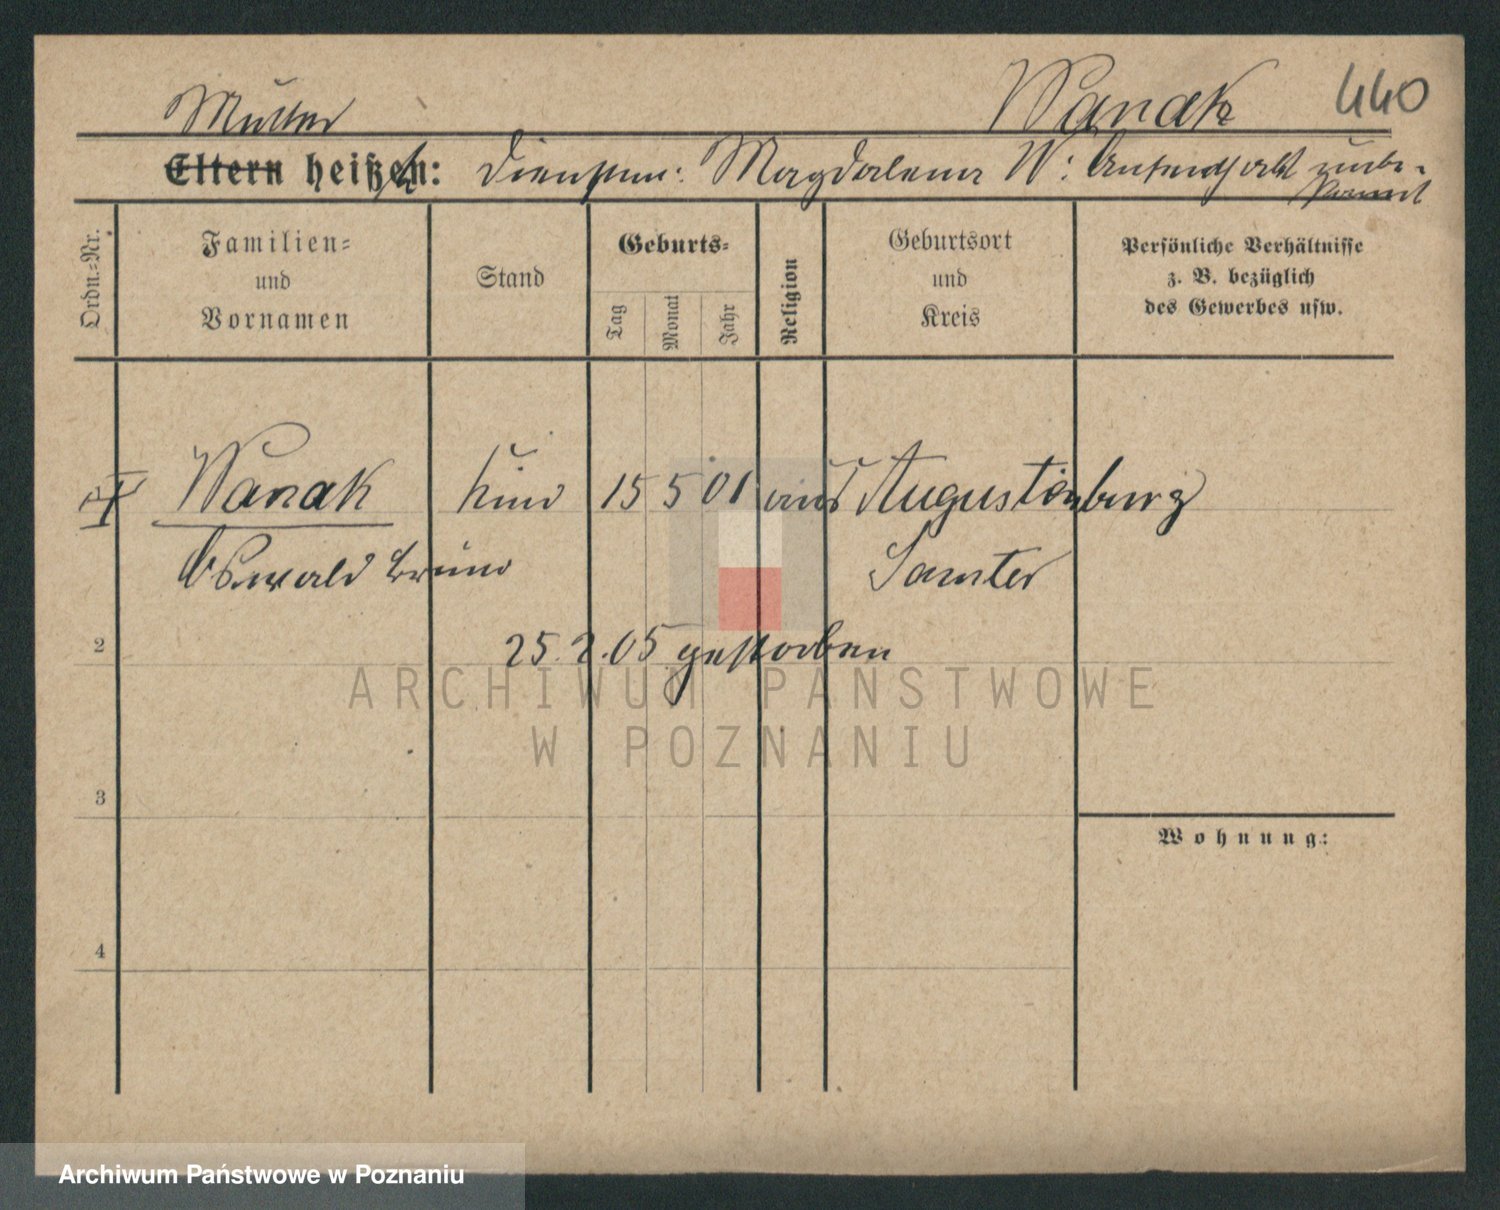 Wanak 440
Mutter
Eltern heißt: Dienstm: Magdalena W: Aufenthalt unbe-
kannt
Ordn.-Nr.
Familien-
und
Vornamen
Stand
Geburts-
Tag
Monat
Jahr
Religion
Geburtsort
und
Kreis
Persönliche Verhältnisse
z. B. bezüglich
des Gewerbes usw.
Wanak Kind 15 5 01 Augustenburg
Oswald Bruno Samter
2
25.2.05 gestorben
ARCHIWUM PAŃSTWOWE
W POZNANIU
3
Wohnung:
4
Archiwum Państwowe w Poznaniu